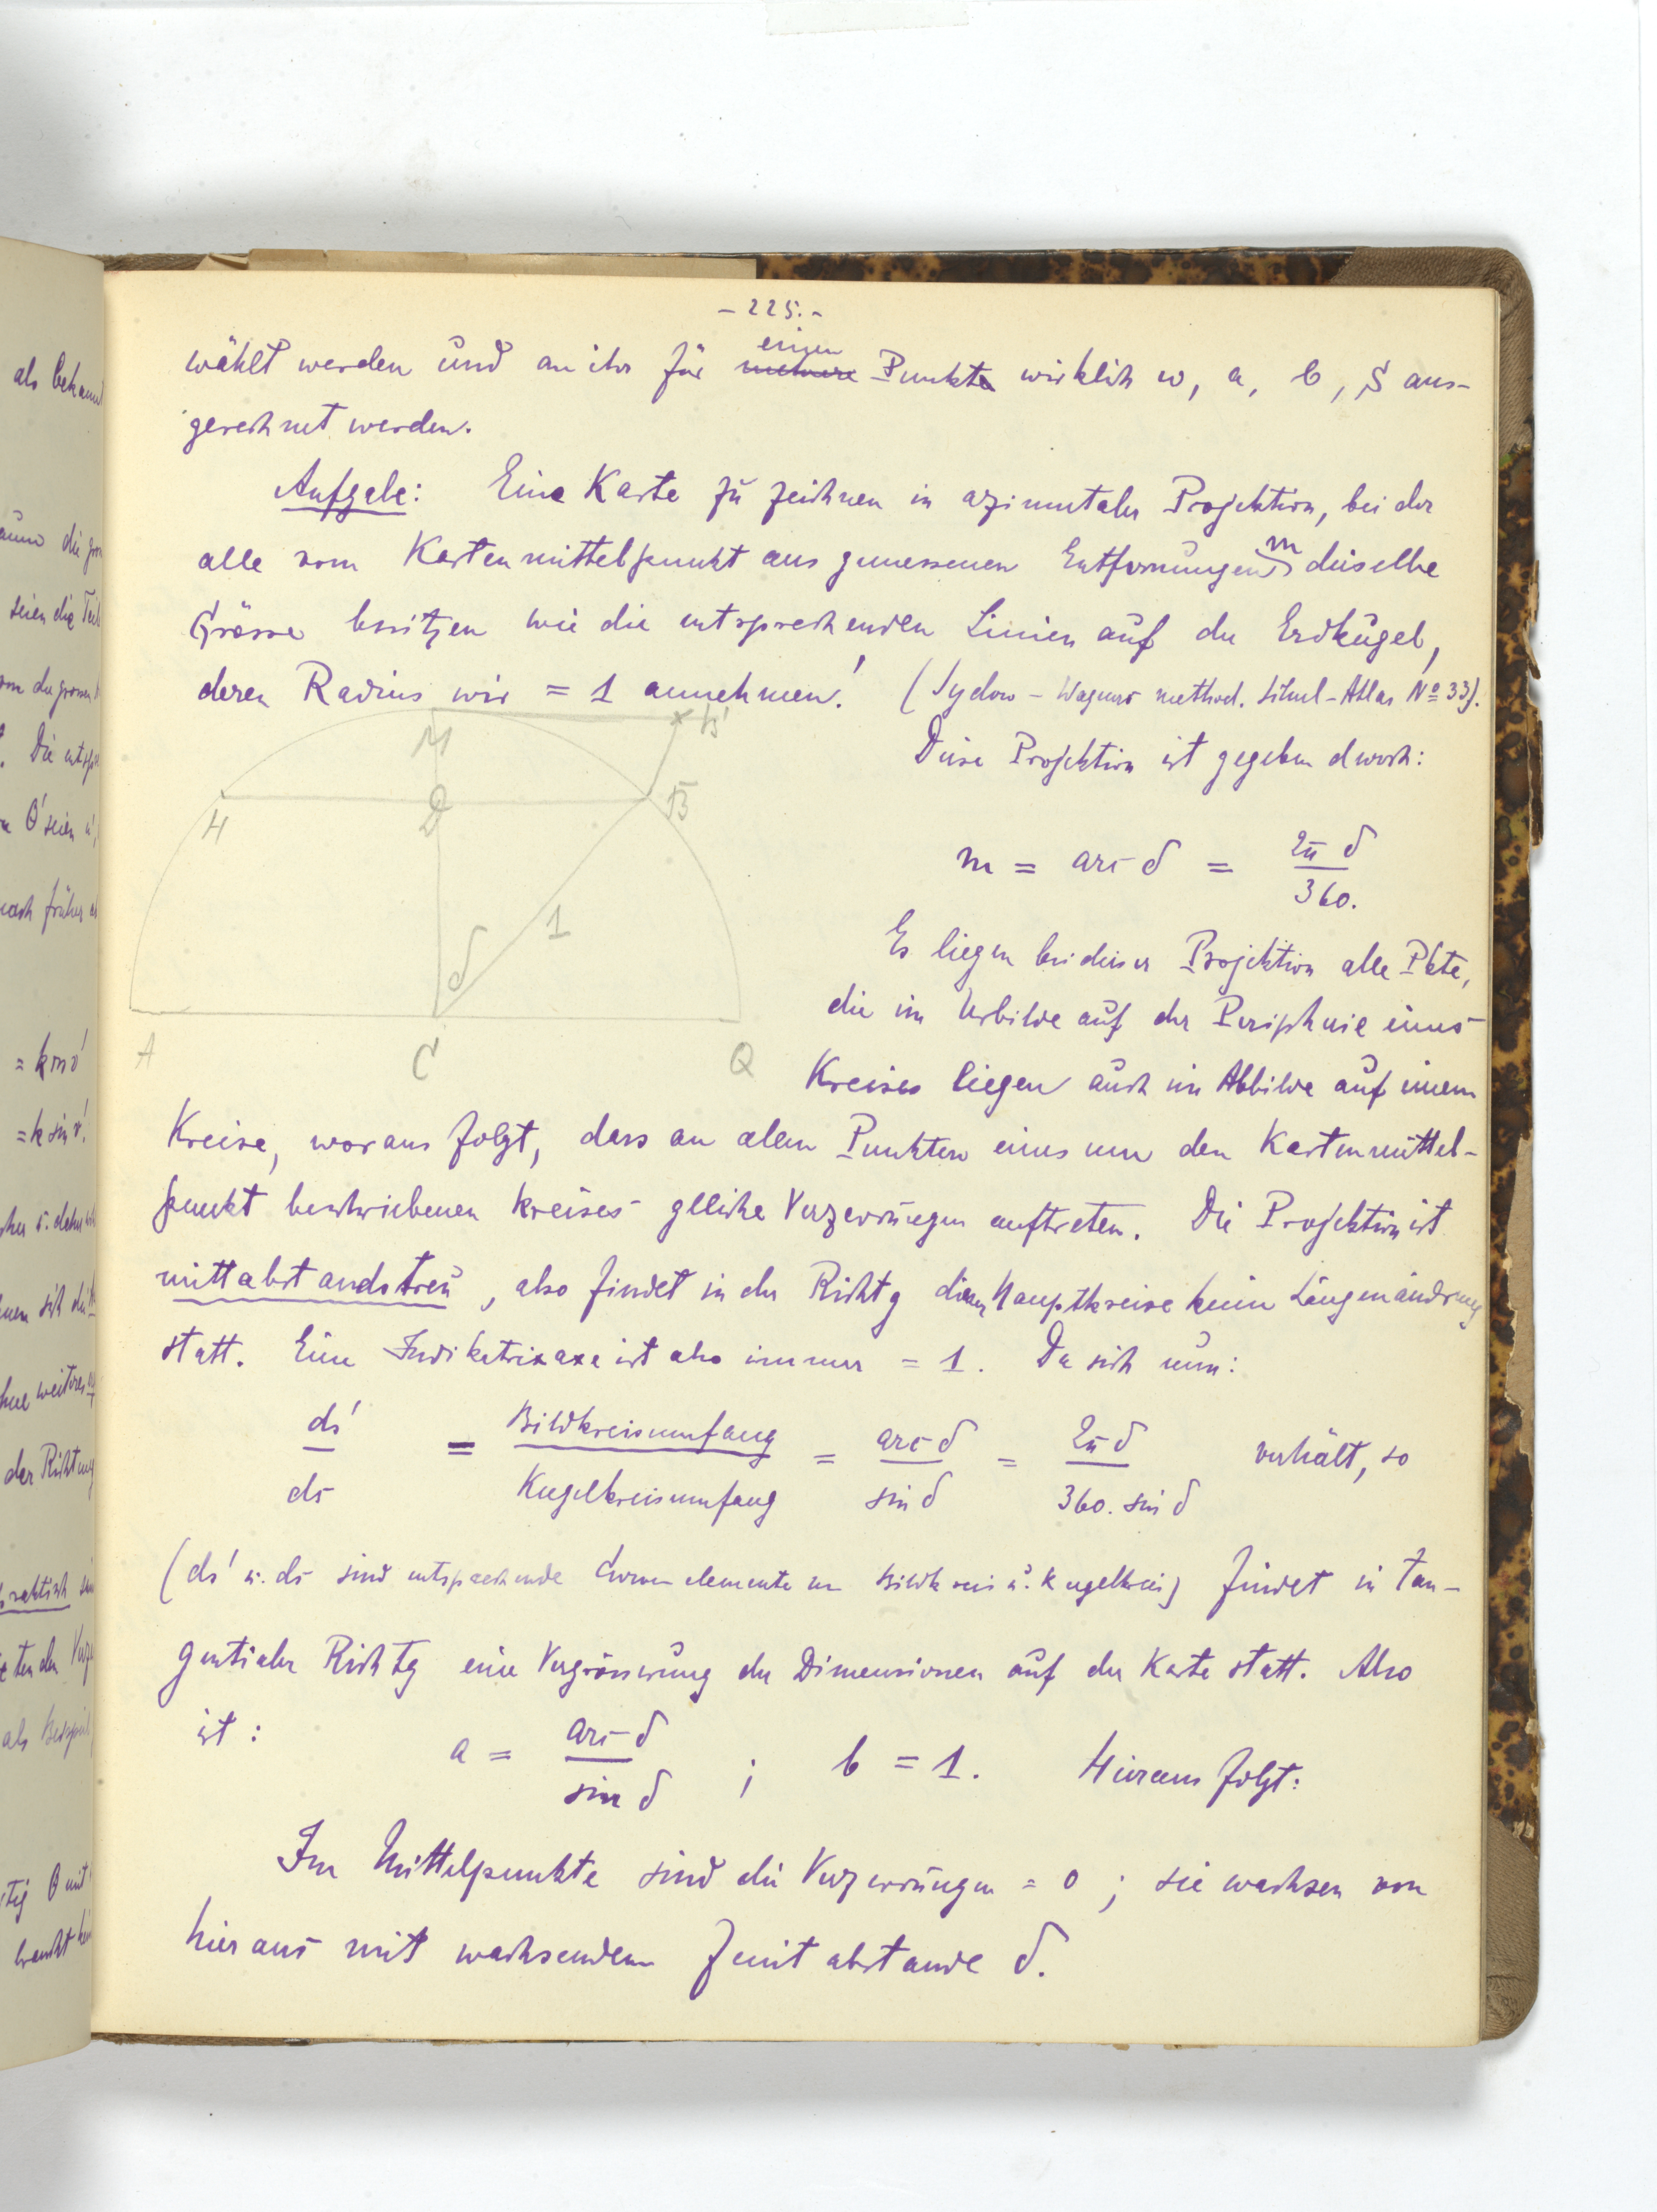 - 225. -
einen
wählt werden und an ihr für mehrere Punkte wirklich w, a, b, S aus-
gerechnet werden.
Aufgabe: Eine Karte zu zeichnen in azimutaler Projektion, bei der
alle vom Kartenmittelpunkt aus gemessenen Entfernungen m dieselbe
Grösse besitzen wie die entsprechenden Linien auf der Erdkugel,
deren Radius wir = 1 annehmen! (Sydow - Wagners method. Schul-Atlas No 33).
Diese Projektion ist gegeben durch:
m = arc δ = 2π δ / 360.
Es liegen bei dieser Projektion alle Pkte,
die im Urbilde auf der Peripherie eines
Kreises liegen auch im Abbilde auf einem
M B'
H D B
1
δ
A C Q
Kreise, woraus folgt, dass an allen Punkten eines um den Kartenmittel-
punkt beschriebenen Kreises gleiche Verzerrungen auftreten. Die Projektion ist
mittabstandstreu, also findet in der Richtg dieser Hauptkreise keine Längenändrung
statt. Eine Indikatrixaxe ist also immer = 1. Da sich nun:
ds' / ds = Bildkreisumfang / Kugelkreisumfang = arc δ / sin δ = 2π δ / 360. sin δ verhält, so
(ds' u. ds sind entsprechende Curvenelemente von Bildkreis u. Kugelkreis) findet in tan-
gentialer Richtg eine Vergrösserung der Dimensionen auf der Karte statt. Also
ist: a = arc δ / sin δ ; b = 1. Hieraus folgt:
Im Mittelpunkte sind die Verzerrungen = 0 ; sie wachsen von
hier aus mit wachsendem Zenitabstande δ.